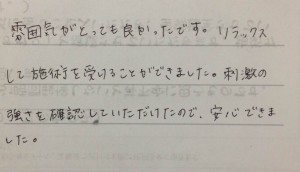 雰囲気がとっても良かったです。リラックス
して施術を受けることができました。刺激の
強さを確認していただけたので、安心できま
した。